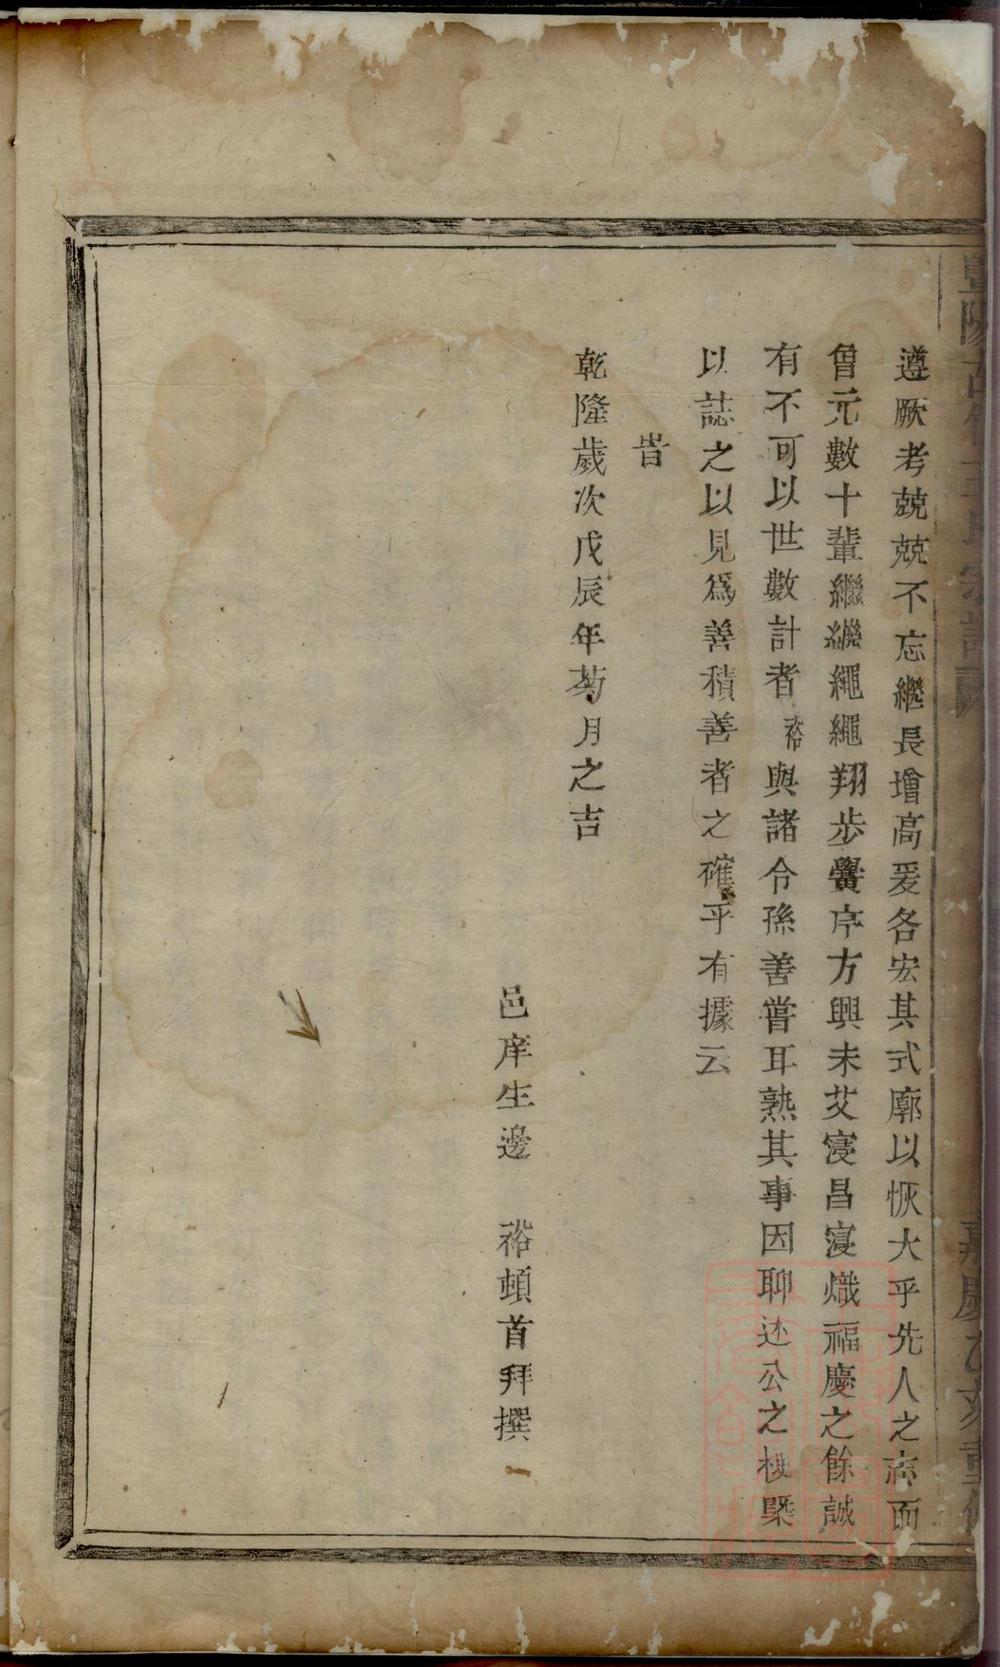 遵厥考兢兢不忘繼長增高爰各宏其式廓以恢大乎先人之志而
曾元數十輩繼繼繩繩翔步黌序方興未艾寖昌寖熾福慶之餘誠
有不可以世數計者裕與諸令孫善嘗耳熟其事因聊述公之梗槩
以誌之以見爲善積善者之確乎有據云
旹
乾隆歲次戊辰年菊月之吉
邑庠生邊 裕頓首拜撰